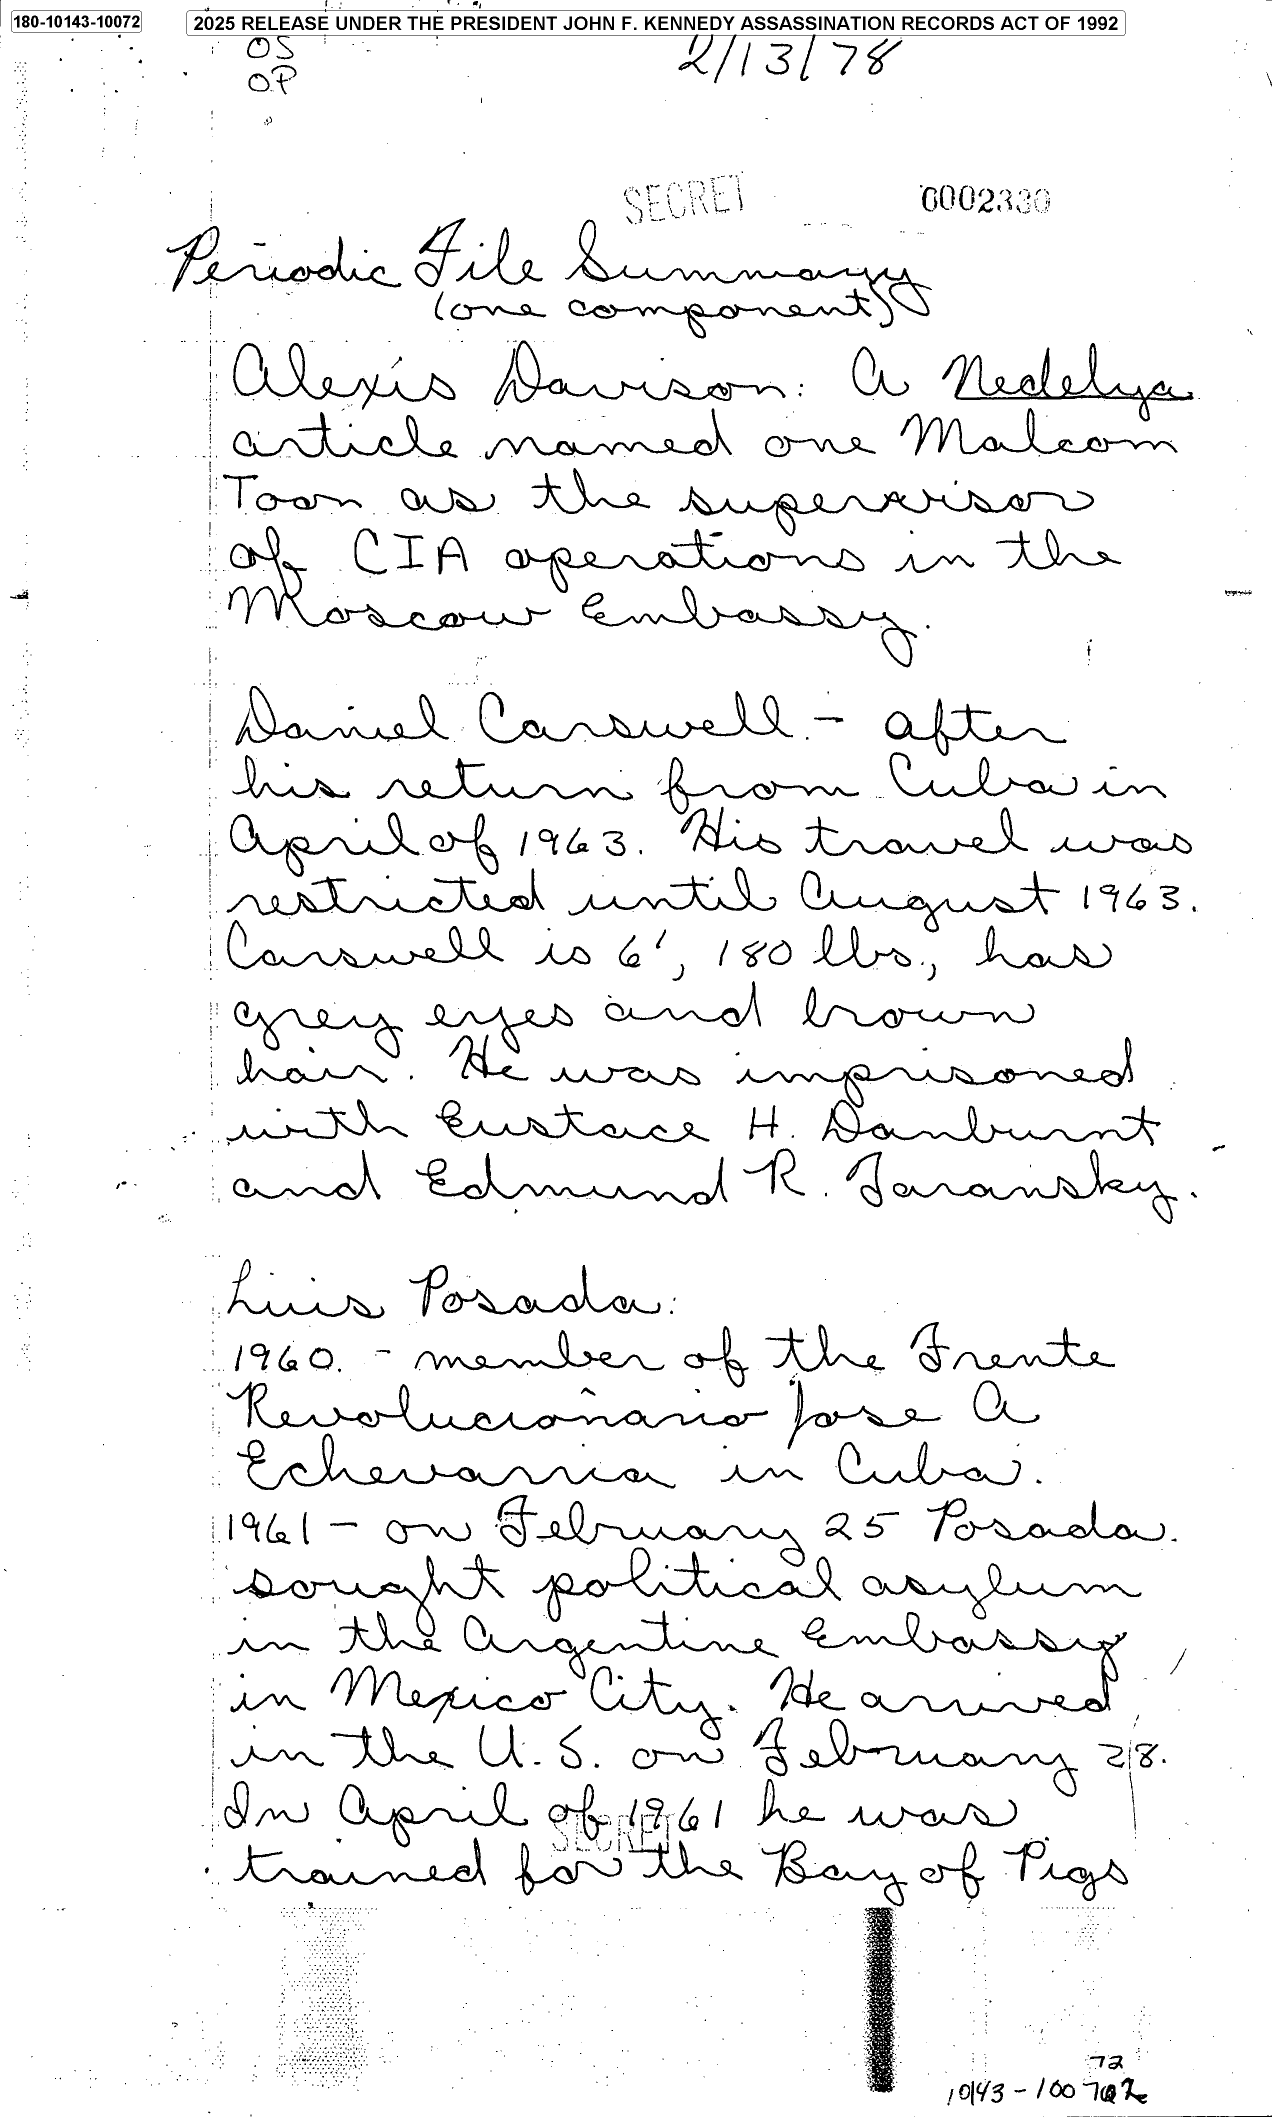 180-10143-10072
2025 RELEASE UNDER THE PRESIDENT JOHN F. KENNEDY ASSASSINATION RECORDS ACT OF 1992
OS
OP
2/13/78
SECRET
0002330
Periodic File Summary
(one component)
Alexis Davison: A Nedelya
article named one Malcom
Toon as the supervisor
of CIA operations in the
Moscow Embassy.
Daniel Carswell - after
his return from Cuba in
April of 1963. His travel was
restricted until August 1963.
Carswell is 6', 180 lbs., has
grey eyes and brown
hair. He was imprisoned
with Eustace H. Danburnt
and Edmund R. Taransky.
Luis Posada:
1960. - member of the Frente
Revolucionario Jose A
Echevarria in Cuba.
1961 - on February 25 Posada
sought political asylum
in the Argentine Embassy
in Mexico City. He arrived
in the U.S. on February 28.
In April of 1961 he was
SECRET
trained for the Bay of Pigs
72